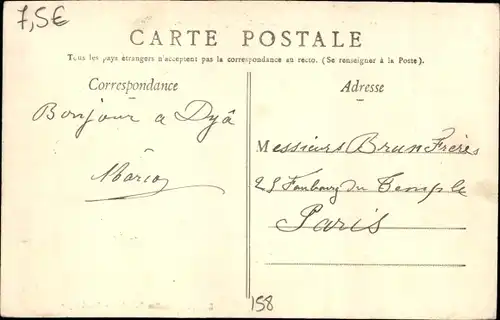 7,5€
CARTE POSTALE
Tous les pays étrangers n'acceptent pas la correspondance au recto. (Se renseigner à la Poste).
Correspondance
Adresse
Bonjour a Dyâ
Messieurs Brun Frères
25 Faubourg du Temple
Paris
158